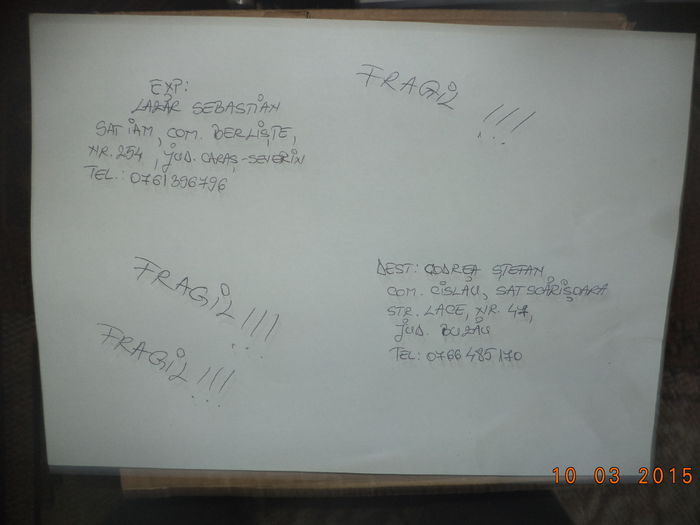 EXP:
LAZĂR SEBASTIAN
SAT IAM, COM. BERLIȘTE,
NR. 254, JUD. CARAȘ-SEVERIN
TEL.: 0761396796
FRAGIL !!!
FRAGIL!!!
FRAGIL!!!
DEST: CODREA ȘTEFAN
COM. CISLĂU, SAT SCĂRIȘOARA
STR. LACE, NR. 47,
JUD. BUZĂU
TEL: 0766485170
10 03 2015